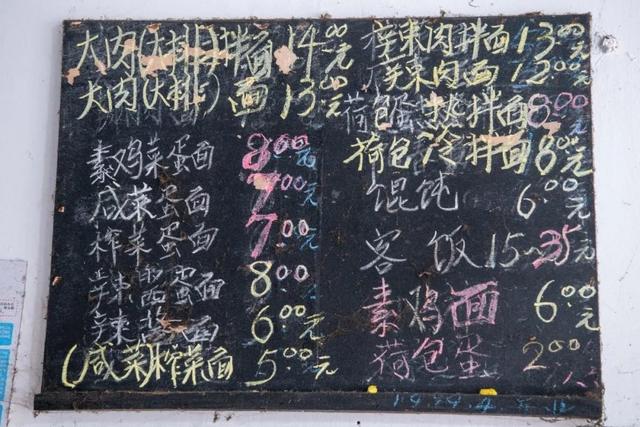 大肉(大排)拌面 14.00元
大肉(大排)面 13.00元
素鸡菜蛋面 8.00元
咸菜蛋面 7.00元
榨菜蛋面 7.00元
蛋面 8.00
面 6.00元
(咸菜)榨菜面 5.00元
肉拌面 13.00元
肉面 12.00元
荷包蛋热拌面 8.00
荷包冷拌面 8.00元
馄饨 6.00元
客饭 15-35元
素鸡面 6.00元
荷包蛋 2.00